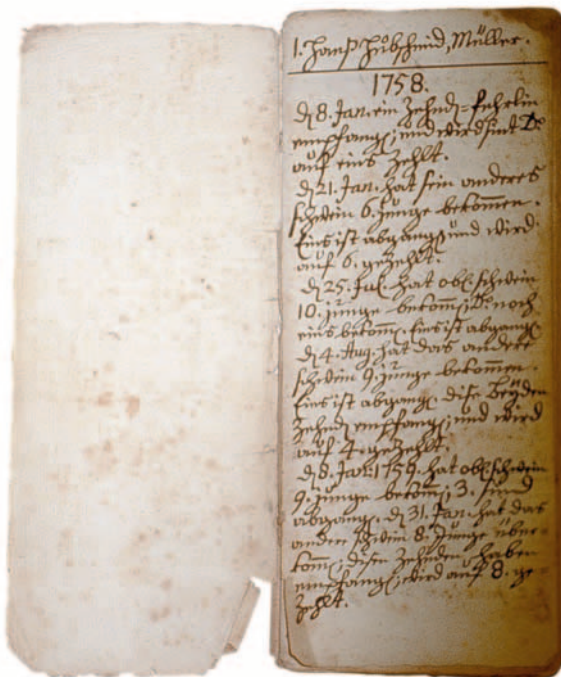 1. Hanß Hübschmid, Müller.
1758.
dę 8. Jan. ein Zehndę-fehrlin
empfangę, und wird sint
auf eins zehlt.
dę 21. Jan. hat sein anderes
schwein 6. junge bekommen.
Eins ist abgangę und wird
auf 6. gezehlt.
dę 25. Jul. hat obl. schwein
10. junge bekomę, noch
eins bekomę. Eins ist abgangę.
dę 4. Aug. hat das andere
schwein 9. junge bekommen.
Eins ist abgangę. dise beyden
Zehndę empfangę, und wird
auf 4. gezehlt.
dę 8. Jan. 1759. hat obl. schwein
9. junge bekomę, 3. sind
abgangę. dę 31. Jan. hat das
ander schwein 8. Junge über-
komę, disen Zehnden haben
empfangę, wird auf 8. ge-
zehlt.